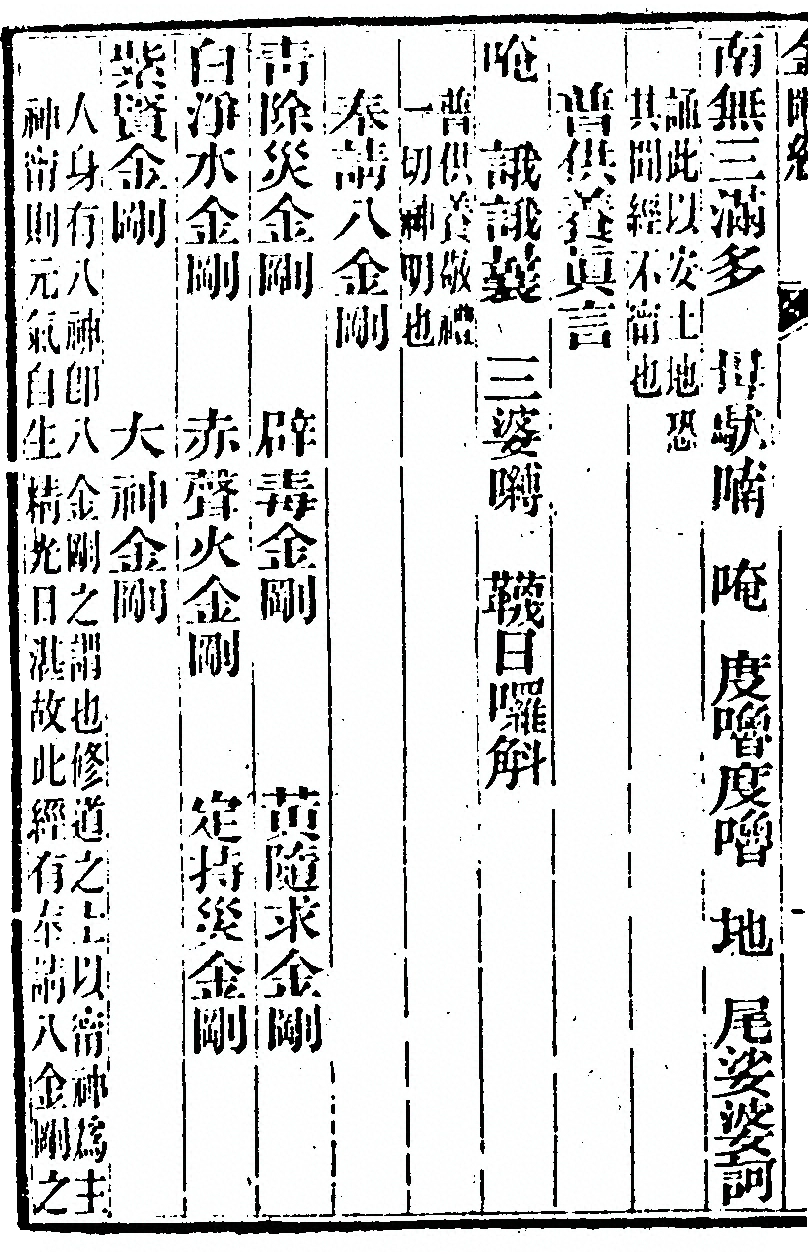 金剛經
南無三滿多 母馱喃 唵 度嚕度嚕 地 尾娑婆訶
誦此以安土地恐
其聞經不甯也
普供養眞言
唵 誐誐曩 三婆嚩 韈日囉斛
普供養敬禮
一切神明也
奉請八金剛
青除災金剛 辟毒金剛 黃隨求金剛
白淨水金剛 赤聲火金剛 定持災金剛
紫賢金剛 大神金剛
人身有八神卽八金剛之謂也修道之士以甯神爲主
神甯則元氣自生精光日湛故此經有奉請八金剛之